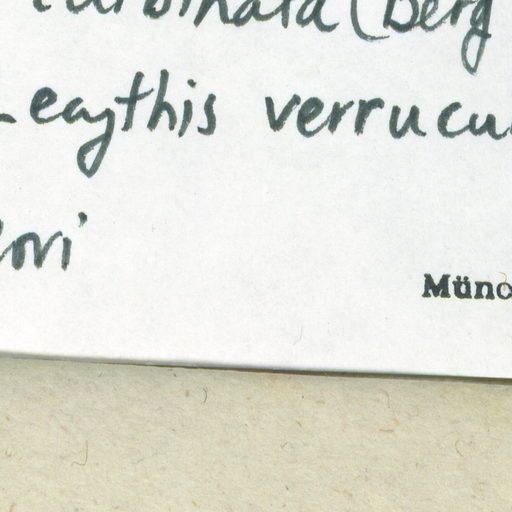 turbinata (Berg
Lecythis verrucu
lovi
Münc